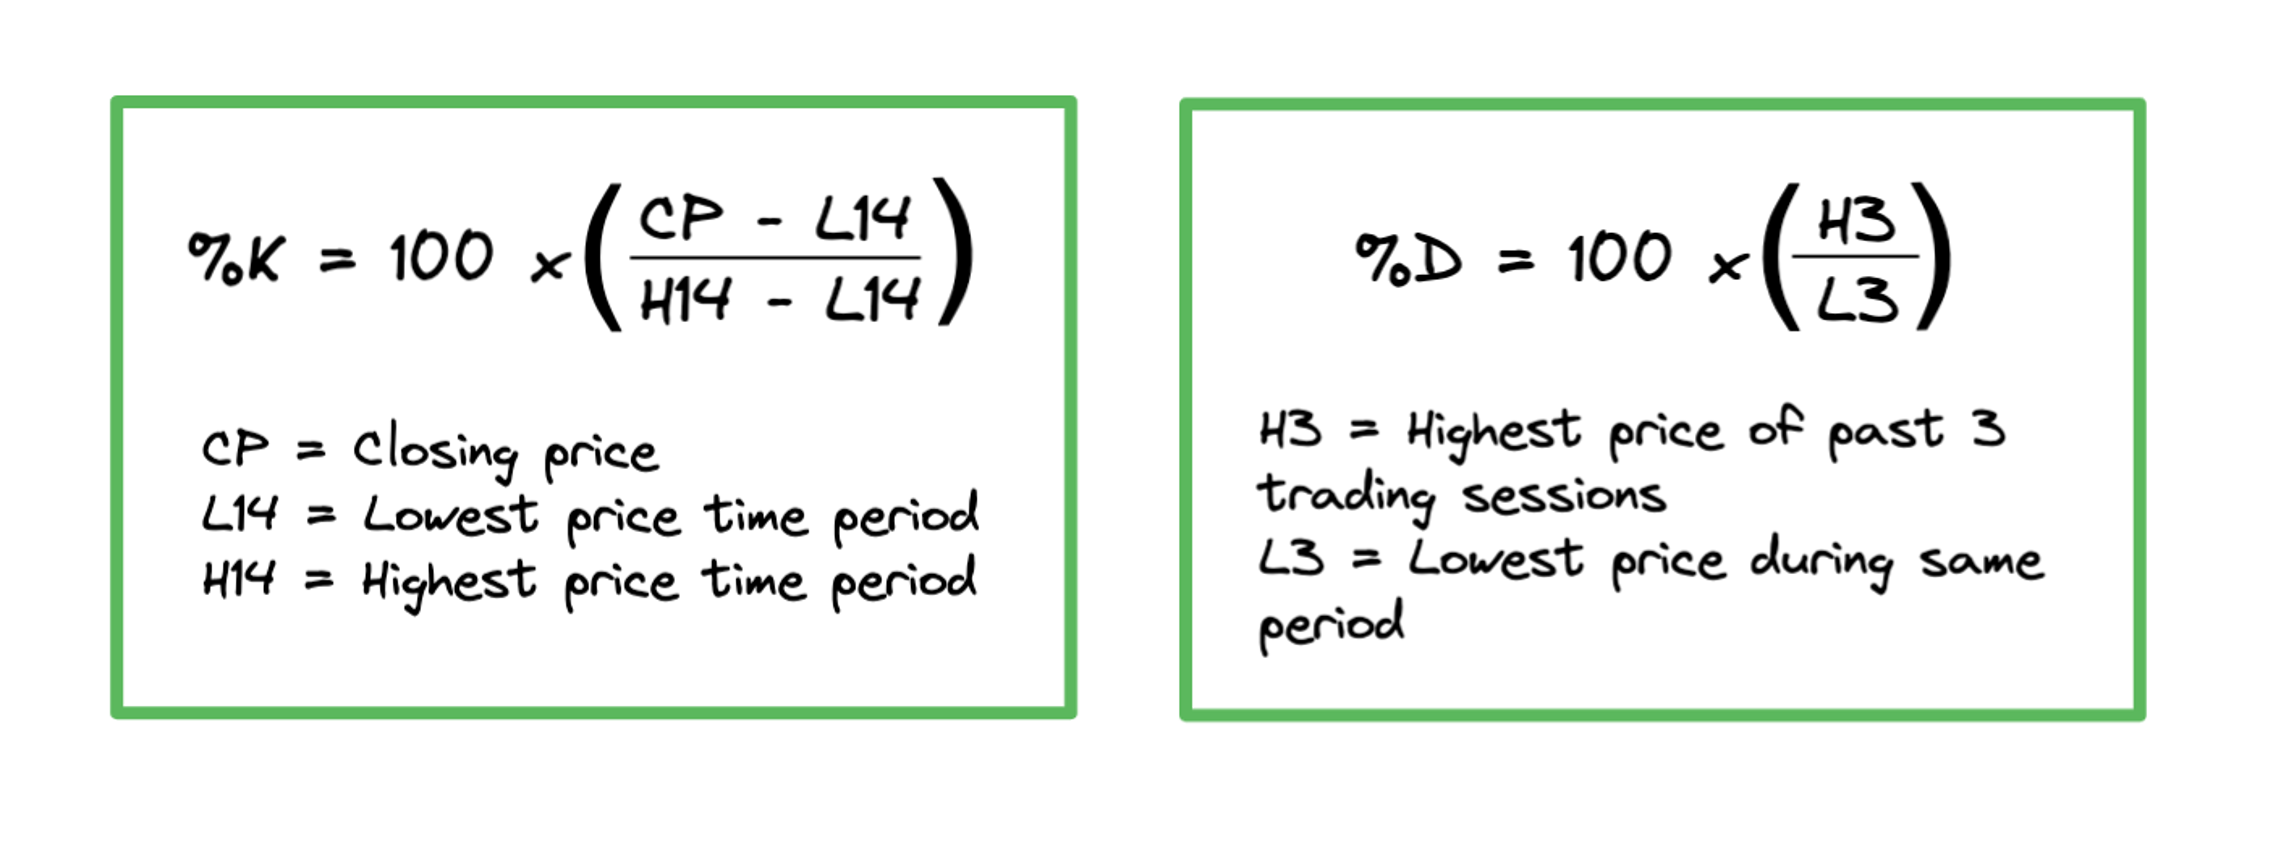 %K = 100 × (CP - L14 / H14 - L14)
CP = Closing price
L14 = Lowest price time period
H14 = Highest price time period
%D = 100 × (H3 / L3)
H3 = Highest price of past 3
trading sessions
L3 = Lowest price during same
period